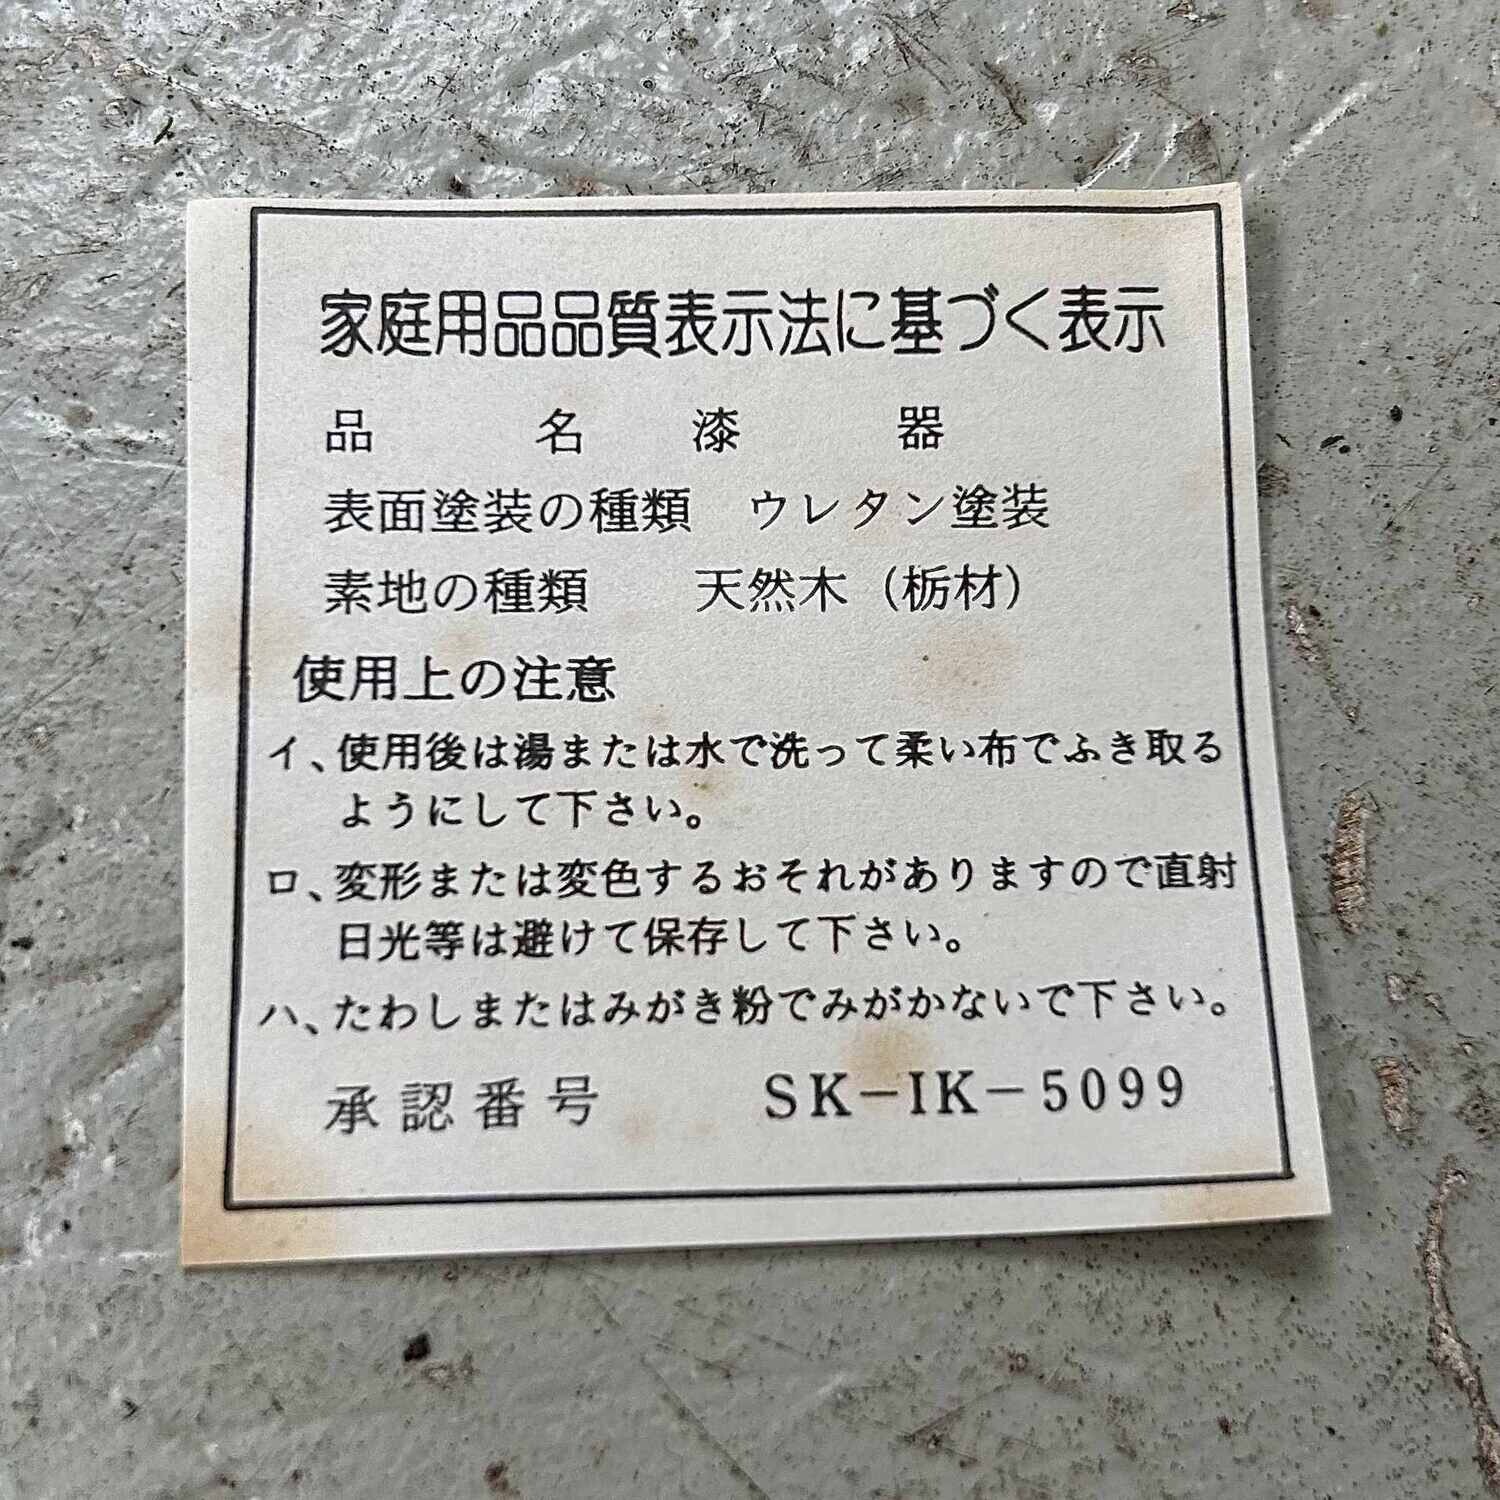 家庭用品品質表示法に基づく表示
品　　　名　　漆　　　器
表面塗装の種類　ウレタン塗装
素地の種類　　天然木（栃材）
使用上の注意
イ、使用後は湯または水で洗って柔い布でふき取る
ようにして下さい。
ロ、変形または変色するおそれがありますので直射
日光等は避けて保存して下さい。
ハ、たわしまたはみがき粉でみがかないで下さい。
承認番号　　SK－IK－5099